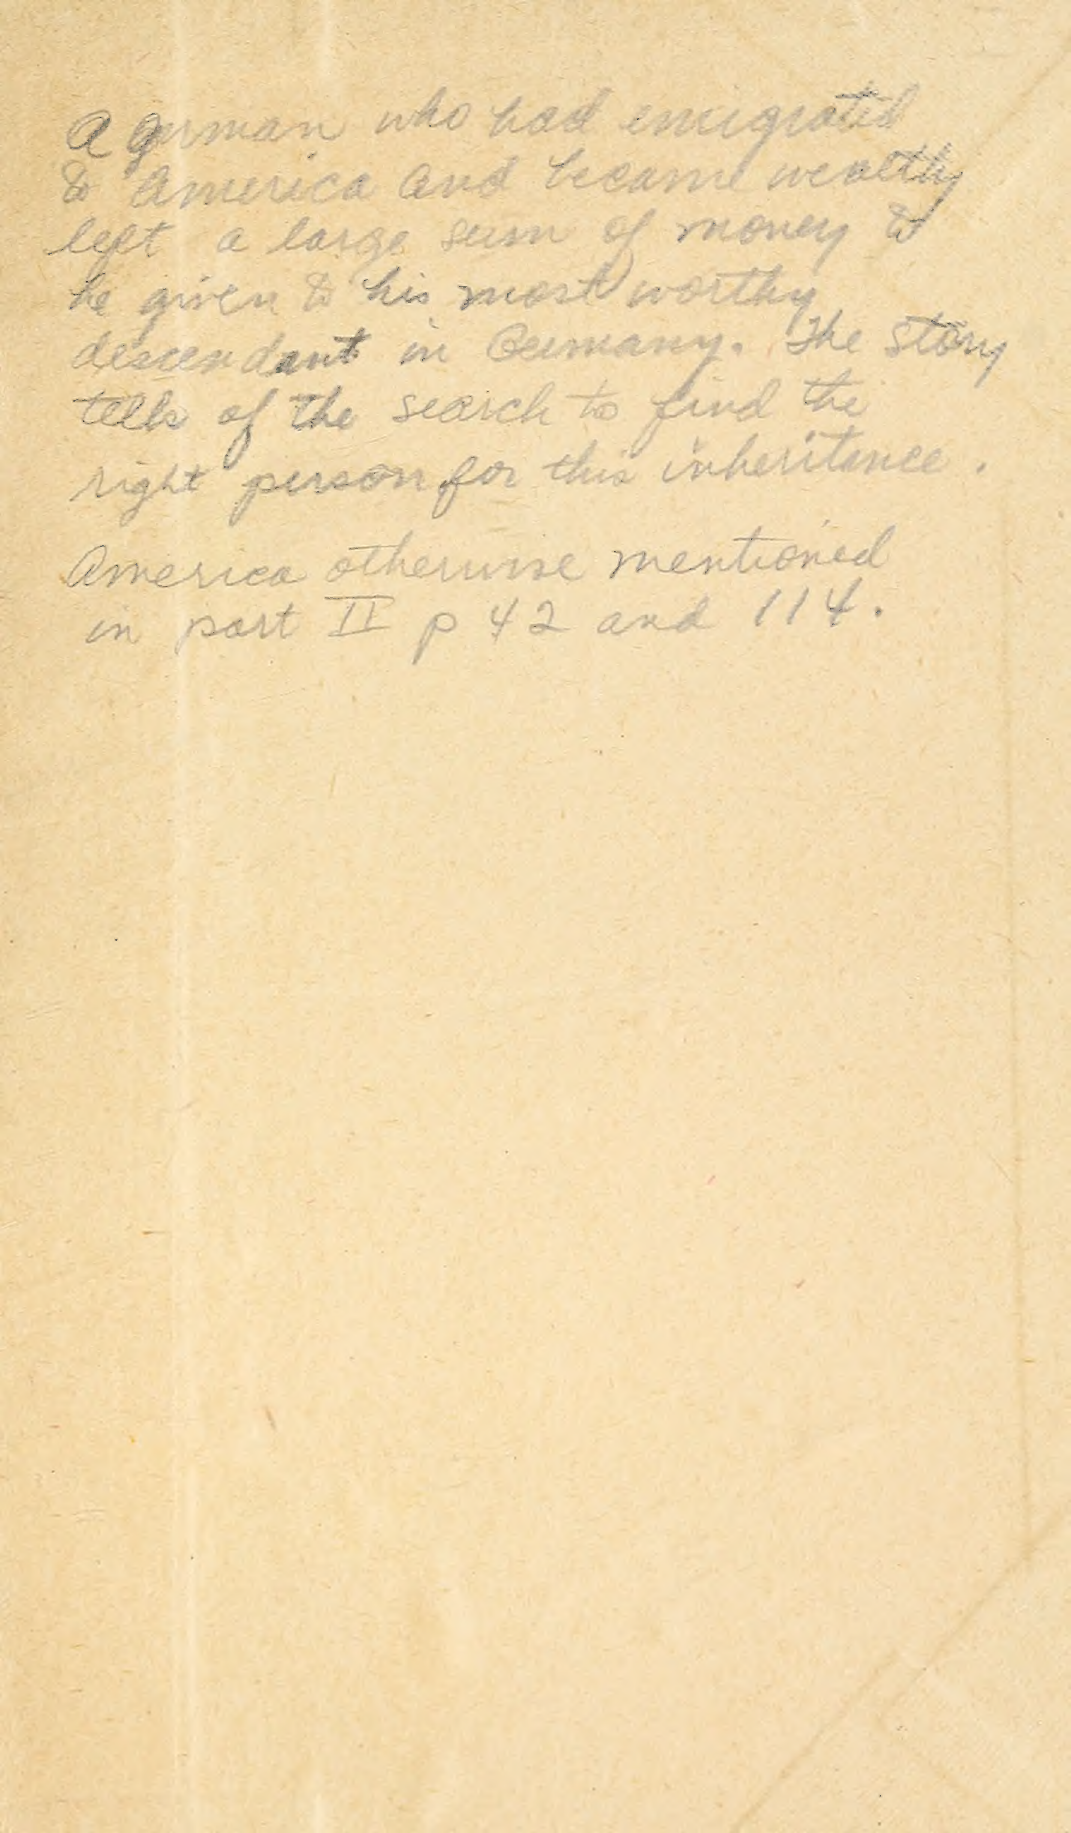 A german who had emigrated
to America and became wealthy
left a large sum of money to
be given to his most worthy
descendant in Germany. The story
tells of the search to find the
right person for this inheritance.
America otherwise mentioned
in part II p 42 and 114.